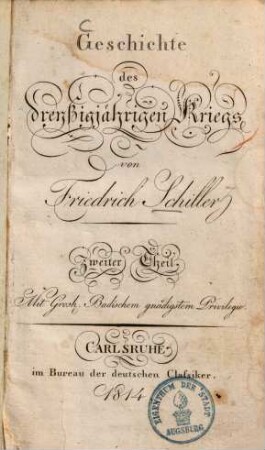 Geschichte
des
dreyßigjährigen Kriegs
von
Friedrich Schiller
Zweiter Theil.
Mit Grosh. Badischem gnädigstem Privilegio.
CARLSRUHE,
im Bureau der deutschen Classiker.
1814
EIGENTHUM DER STADT
AUGSBURG